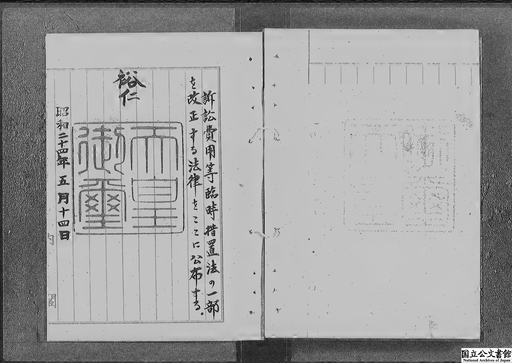 訴訟費用等臨時措置法の一部
を改正する法律をここに公布する。
裕仁
天皇
御璽
昭和二十四年五月十四日
国立公文書館
National Archives of Japan